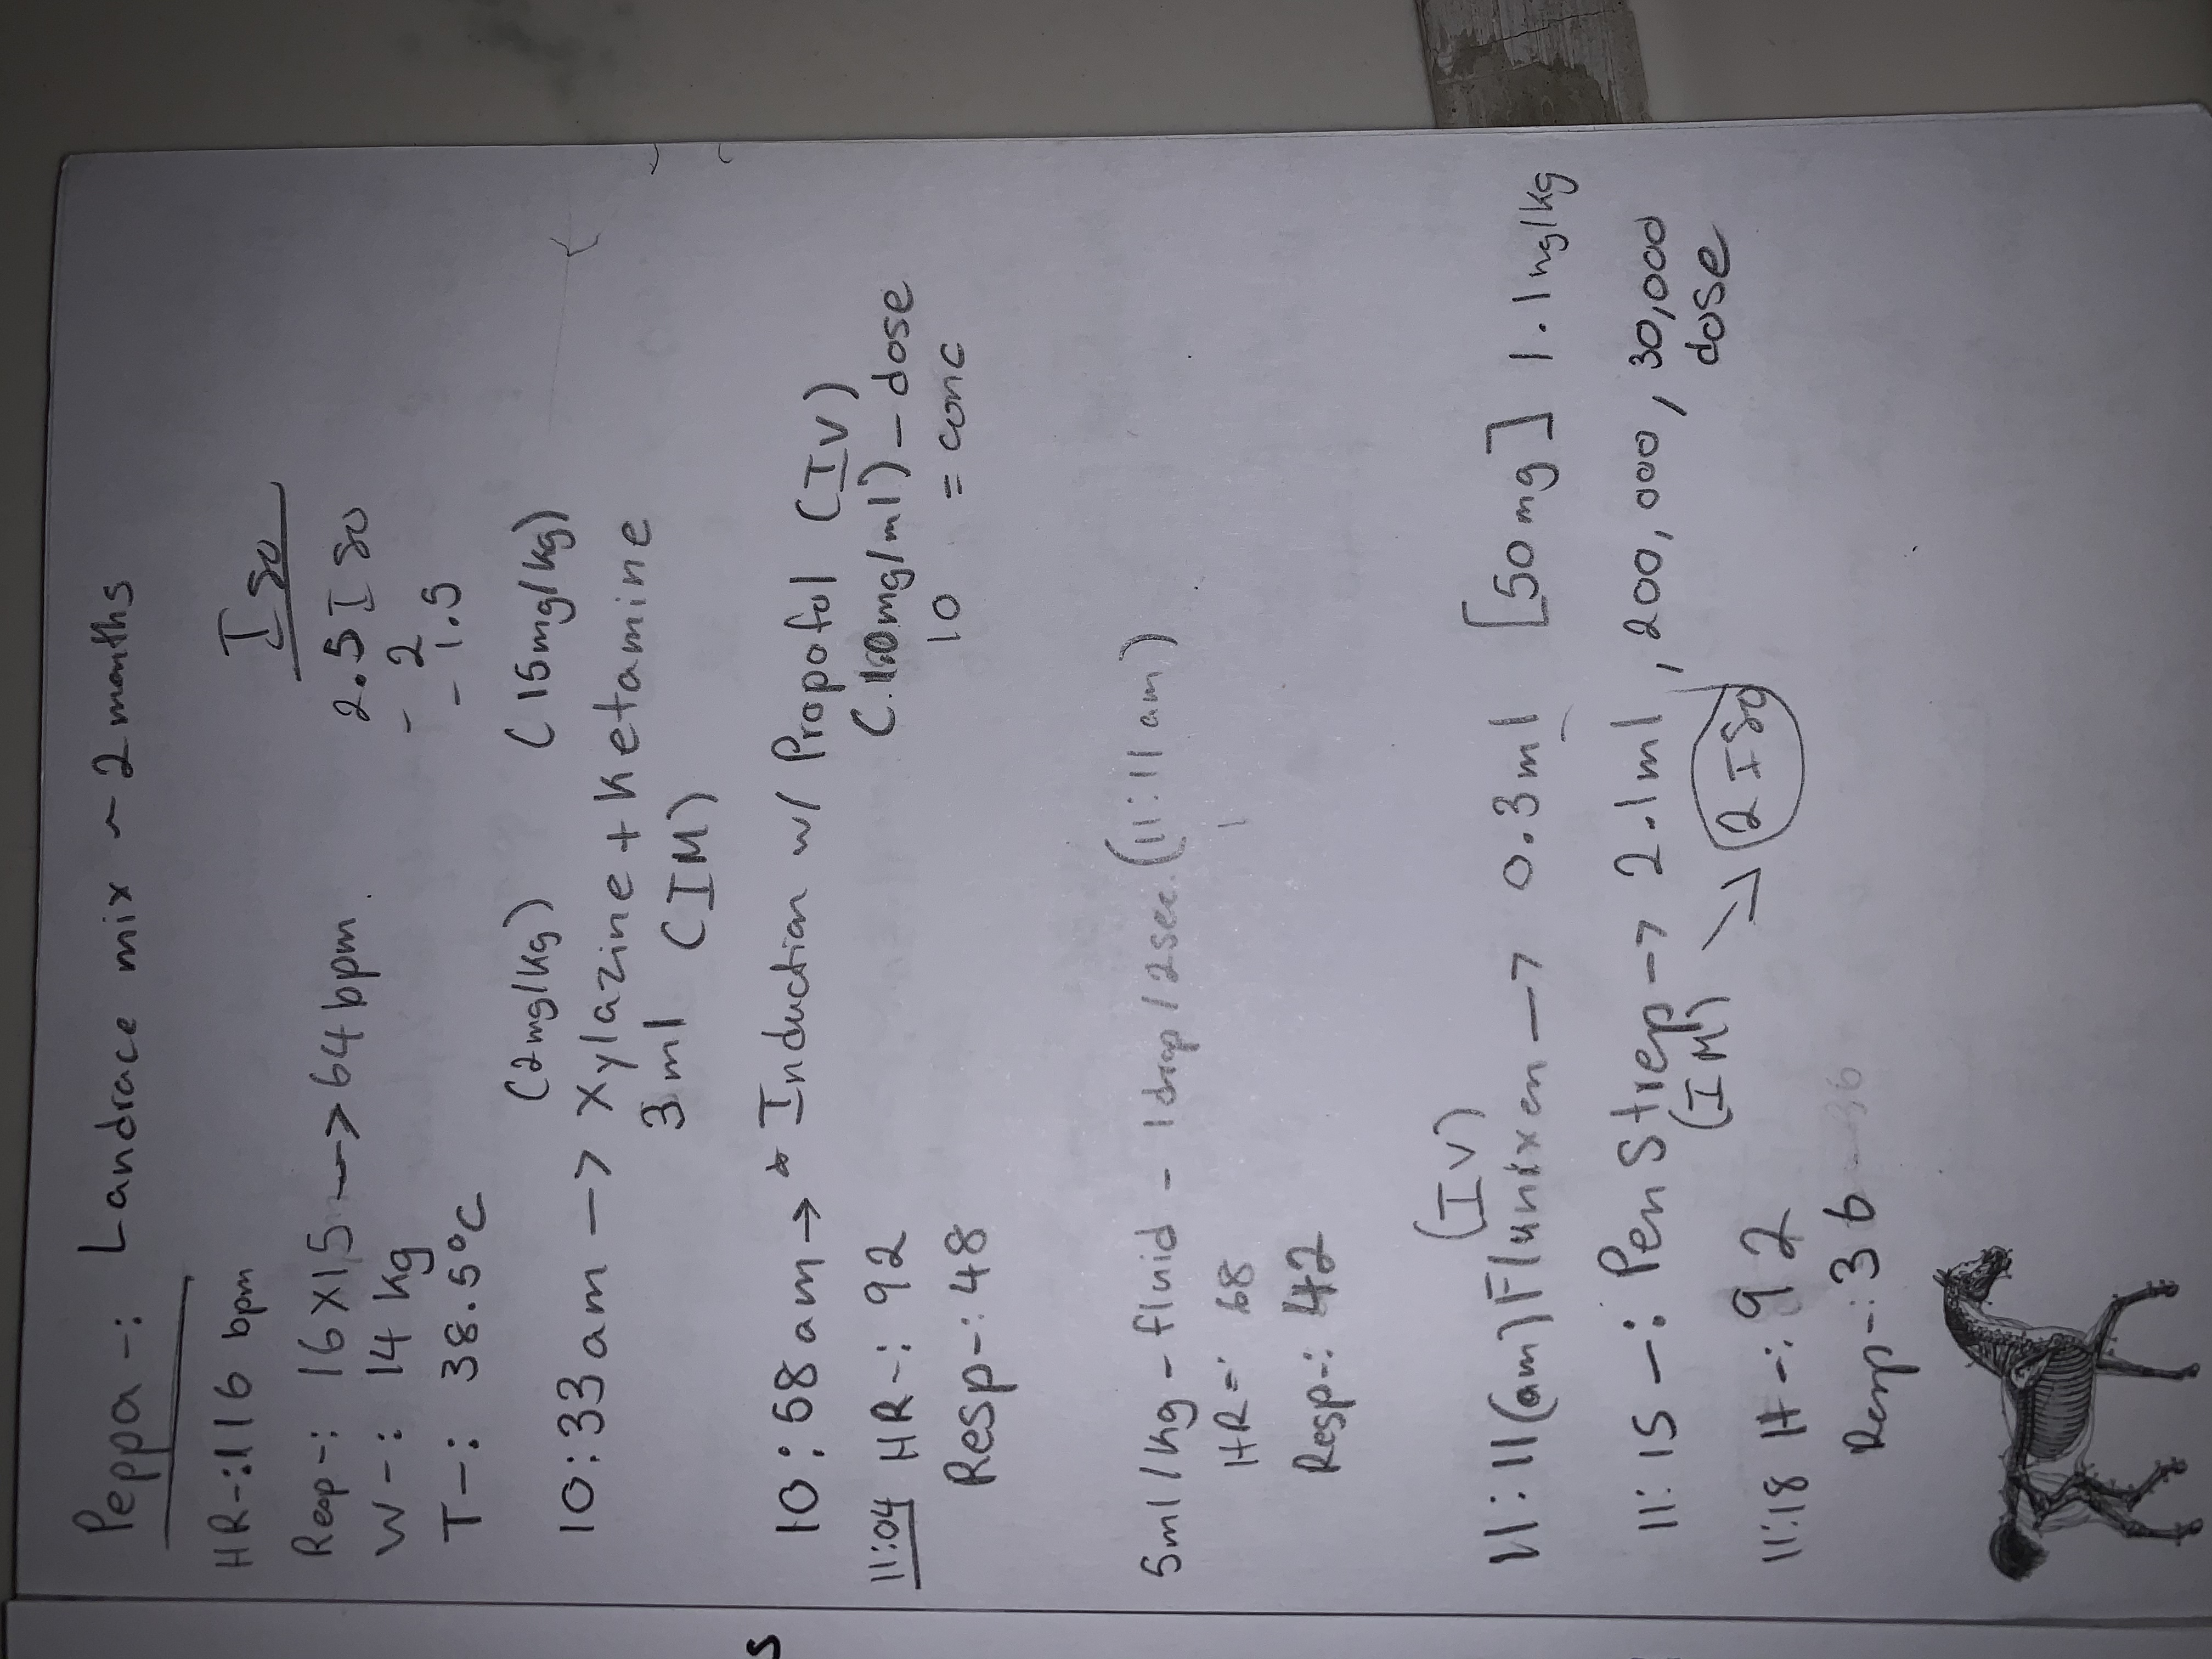 Peppa -: Landrace mix ~ 2 months
HR-: 116 bpm
Iso
Resp-: 16 x 15 → 64 bpm.
2.5 Iso
W-: 14 kg
- 2
T-: 38.5°C
- 1.5
(2mg/kg) (15mg/kg)
10:33am → Xylazine + Ketamine
3ml (IM)
10:58am → * Induction w/ Propofol (IV)
11:04 HR-: 92
mg/ml) - dose
Resp-: 48
10 = conc
5ml/kg - fluid - 1drop/2sec. (11:11am)
HR-: 68
Resp-: 42
(IV)
11:11(am) Flunixen → 0.3ml [50mg] 1.1mg/kg
11:15 -: PenStrep → 2.1ml, 200,000, 30,000
(IM) → 2 Iso
dose
11:18 H-: 92
Resp-: 36
s